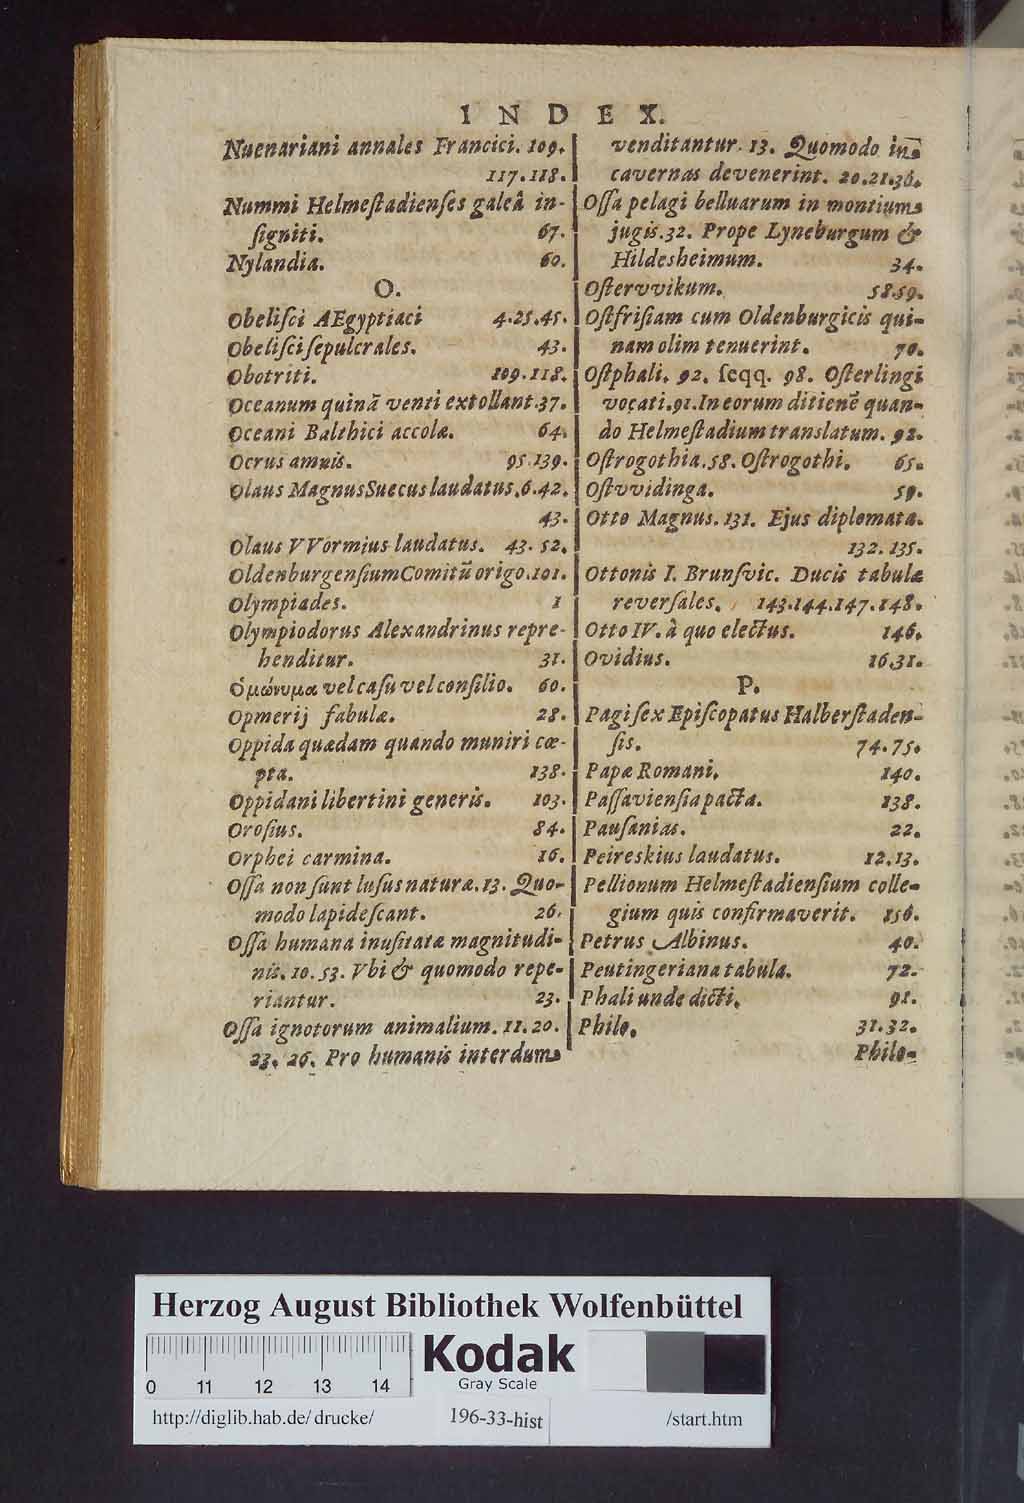 INDEX.
Nuenariani annales Francici. 109.
117. 118.
Nummi Helmeſtadienſes galeâ in-
ſigniti. 67.
Nylandia. 60.
O.
Obeliſci AEgyptiaci 4. 25. 45.
Obeliſci ſepulcrales. 43.
Obotriti. 109. 118.
Oceanum quinā venti extollant. 37.
Oceani Balthici accolæ. 64.
Ocrus amnis. 95. 139.
Olaus Magnus Suecus laudatus. 6. 42.
43.
Olaus VVormius laudatus. 43. 52.
Oldenburgenſium Comitū origo. 101.
Olympiades. 1
Olympiodorus Alexandrinus repre-
henditur. 31.
Ὁμώνυμα vel caſu vel conſilio. 60.
Opmerij fabulæ. 28.
Oppida quædam quando muniri cœ-
pta. 138.
Oppidani libertini generis. 103.
Oroſius. 84.
Orphei carmina. 16.
Oſſa non ſunt luſus naturæ. 13. Quo-
modo lapideſcant. 26.
Oſſa humana inuſitatæ magnitudi-
nis. 10. 53. Vbi & quomodo repe-
riantur. 23.
Oſſa ignotorum animalium. 11. 20.
23. 26. Pro humanis interdum
venditantur. 13. Quomodo in
cavernas devenerint. 20. 21. 36.
Oſſa pelagi belluarum in montium
jugis. 32. Prope Lyneburgum &
Hildesheimum. 34.
Oſtervvikum. 58. 59.
Oſtfriſiam cum Oldenburgicis qui-
nam olim tenuerint. 70.
Oſtphali. 92. ſeqq. 98. Oſterlingi
vocati. 91. In eorum ditienē quan-
do Helmeſtadium translatum. 92.
Oſtrogothia. 58. Oſtrogothi. 65.
Oſtvvidinga. 59.
Otto Magnus. 131. Ejus diplomata.
132. 135.
Ottonis I. Brunſvic. Ducis tabulæ
reverſales. 143. 144. 147. 148.
Otto IV. à quo electus. 146.
Ovidius. 16 31.
P.
Pagi ſex Epiſcopatus Halberſtaden-
ſis. 74. 75.
Papæ Romani. 140.
Paſſavienſia pacta. 138.
Pauſanias. 22.
Peireskius laudatus. 12. 13.
Pellionum Helmeſtadienſium colle-
gium quis confirmaverit. 156.
Petrus Albinus. 40.
Peutingeriana tabula. 72.
Phali unde dicti. 91.
Philo. 31. 32.
Philo-
Herzog August Bibliothek Wolfenbüttel
Kodak
Gray Scale
0 11 12 13 14
http://diglib.hab.de/drucke/ 196-33-hist /start.htm